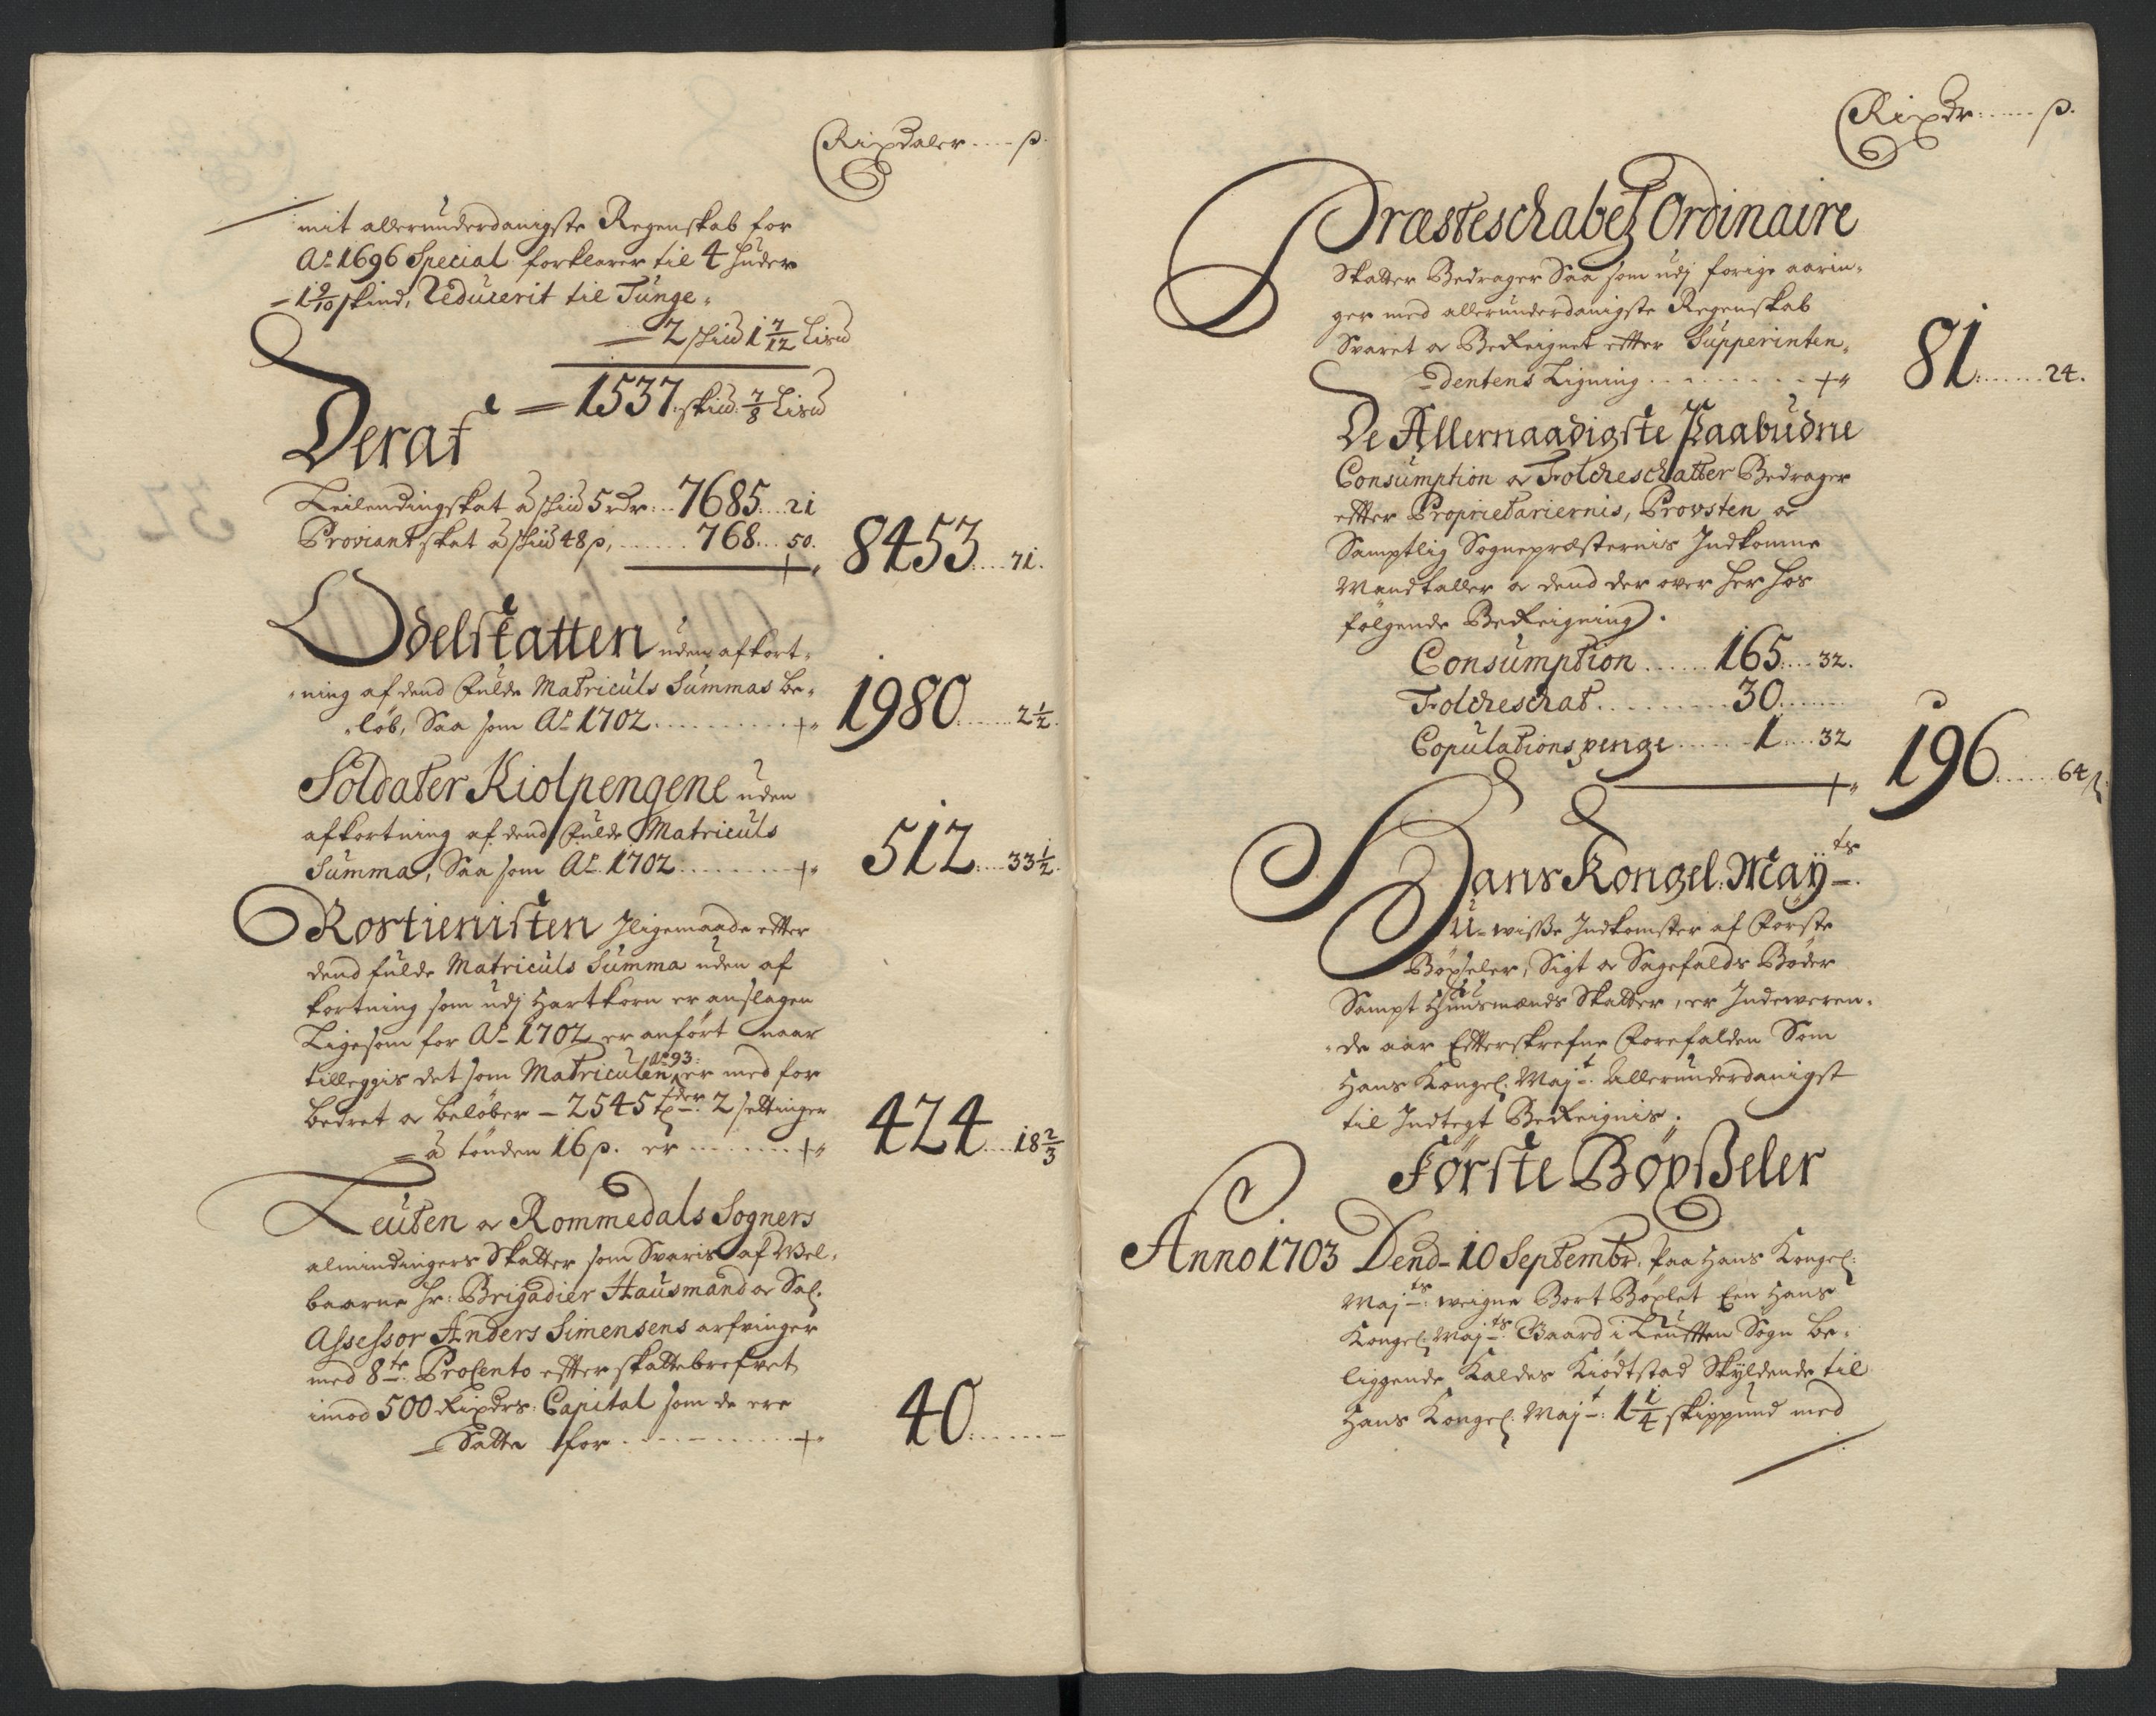 Rixdaler .... ß.
mit allerunderdanigste Regenskab for
Ao 1696 Special forklarer til 4 Huder
- 1 9/10 skind, Reducerit til Tunge.
2 skud 1 7/12 Lisd
Deraf = 1537. skud. 7/8 Lisd
Leilendingskat à skud 5 rdr: .. 7685 .... 21
Proviantskat à skud 48 ß, ...... 768 .... 50. 8453 .... 71.
Odelskatten uden afkort-
-ning af dend fulde Matriculs Summas be-
-løb, Saa som Ao 1702 .......... 1980 ...... 2 1/2.
Soldater Kiolpengene uden
afkortning af dend fulde Matriculs
Summa, Saa som Ao 1702 ......... 512 .... 33 1/2.
Rostienisten Jligemaade efter
dend fulde Matriculs Summa uden af
kortning som udj Hartkorn er anslagen
Ligesom for Ao 1702 er anført naar
tilleggis det som Matriculen Ao 93: er med for
bedret og beløber - 2545 tder 2 settinger
- à tønden 16 ß. er ....... 424 .... 18 2/3
Leuten og Rommedals Sogners
almindingers Skatter som Svaris af Wel-
baarne Hr: Brigadier Hausmand og Sal.
Assessor Anders Simensens arfvinger
med 8te Procento efter skattebrefvet
imod 500 Rixdrs: Capital som de ere
Satte for .......... 40 .......
Rixdr ...... ß.
Præsteschabetz Ordinaire
Skatter Bedrager Saa som udj forige aarin-
ger med allerunderdanigste Regenskab
Svaret og Bereignet efter Supperinten-
-dentens Ligning .......... 81 ....... 24.
De Allernaadigste Paabudne
Consumption og Folcheschatter Bedrager
efter Proprietariernis, Provsten og
Samptlig Sognepræsternis Indkomne
Mandtaller og dend der over her hos
følgende Bereigning.
Consumption ...... 165 .... 32.
Folcheschat ......... 30 .......
Copulations penge ...... 1 .... 32 196 ...... 64 ß
Hans Kongel: Mayts.
U-wisse Indkomster af Første
Bøxseler, Sigt og Sagefalds Bøder
Sampt Huusmænds Skatter, er Indeweren-
-de aar Efterskrefne forefalden Som
Hans Kongel: Majt: Allerunderdanigst
til Indtegt Bereignis.
Første Bøxseler
Anno 1703 Dend - 10 Septembr. paa Hans Kongel:
Majts: weigne Bort Bøxlet Een Hans
Kongel: Majts: Gaard i Leutten Sogn be-
liggende Kaldes Kiødtstad Skyldende til
Hans Kongel: Majt: 1 1/4 skippund med